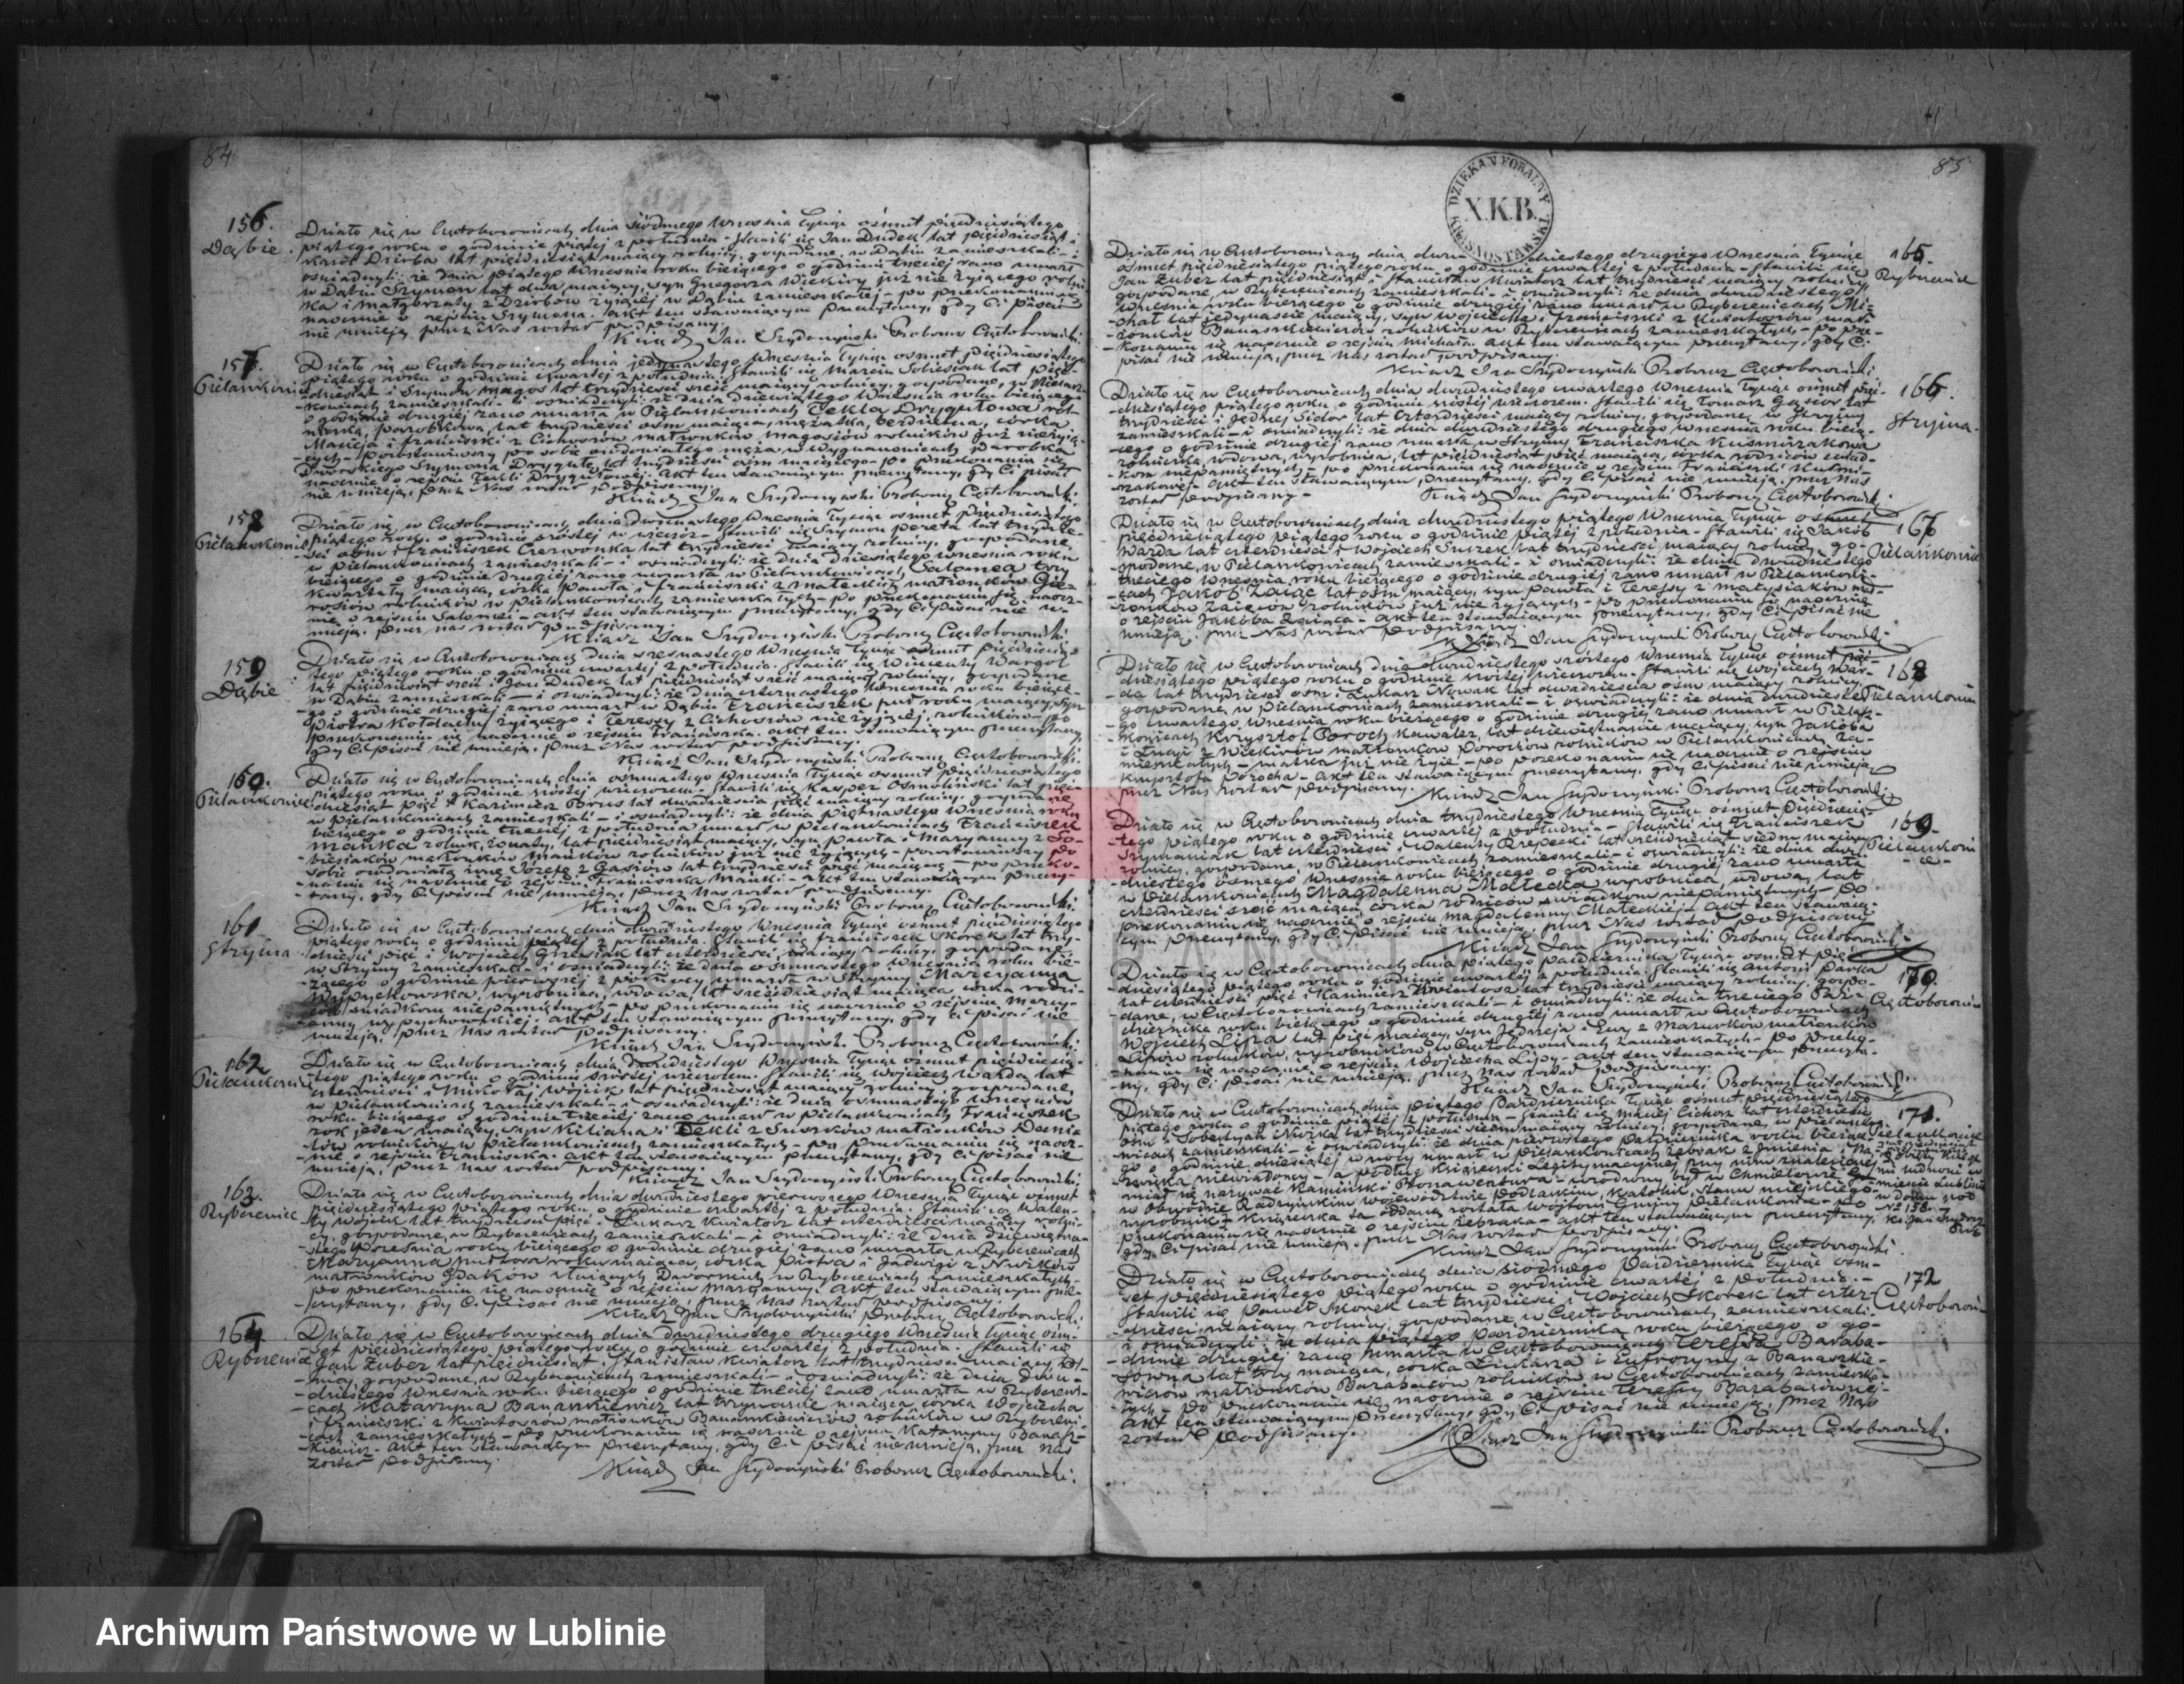 84
156.
Dąbie
Działo się w Częstoborowicach dnia siódmego Września tysiąc ośmset pięćdziesiątego
piątego roku o godzinie piątej z południa - stawili się Jan Dudek lat pięćdziesiąt i
Karol Dzioba lat pięćdziesiąt maiący rolnicy, gospodarze, w Dąbiu zamieszkali - i
oświadczyli: że dnia piątego Września roku bieżącego o godzinie trzeciej rano umarł
w Dąbiu Szymon lat dwa maiący, syn Grzegorza Wiekiry już nie żyjącego rolni-
ka i Małgorzaty z Dziobów żyjącej w Dąbiu zamieszkałej - po przekonaniu się
naocznie o zejściu Szymona. akt ten stawaiącym przeczytany, gdy Ci pisać
nie umieją, przez Nas został podpisany.
Ksiądz Jan Szydoczyński Proboszcz Częstoborowicki.
157.
Pielaszkowice
Działo się w Częstoborowicach dnia jedynastego Września tysiąc ośmset pięćdziesiątego
piątego roku o godzinie czwartej z południa. stawili się Marcin Sobiesiak lat pięć-
dziesiąt i Szymon Magos lat trzydzieści sześć maiący rolnicy, gospodarze, w Pielasz-
kowicach zamieszkali - i oświadczyli: że dnia dziewiątego Września roku bieżącego
o godzinie drugiej rano umarła w Pielaszkowicach Tekla Drygułowa rol-
niczka, parobkowa, lat trzydzieści ośm maiąca, mężatka, bezdzietna, córka
Macieja i Franciszki z Cichoszów małżonków Magosiów rolników już nieżyją-
cych - pozostawiwszy po sobie owdowiałego męża w Wygnanowicach parobka
Dworskiego Szymona Drygułę lat trzydzieści ośm maiącego - po przekonaniu się
naocznie o zejściu Tekli Drygułowej. akt ten stawaiącym przeczytany, gdy Ci pisać
nie umieją, przez Nas został podpisany.
Ksiądz Jan Szydoczyński Proboszcz Częstoborowicki.
158
Pielaszkowice
Działo się w Częstoborowicach dnia dwónastego Września tysiąc ośmset pięćdziesiątego
piątego roku o godzinie szóstej w wieczór - stawili się Szymon Pereta lat trzydzie-
ści ośm i Franciszek Czerwonka lat trzydzieści maiący rolnicy, gospodarze
w Pielaszkowicach zamieszkali - i oświadczyli: że dnia dziesiątego Września roku
bieżącego o godzinie drugiej rano umarła w Pielaszkowicach Salomea trzy
kwartały maiąca, córka Pawła i Franciszki z małżonków
rolników w Pielaszkowicach zamieszkałych - po przekonaniu się naocz-
nie o zejściu Salomei - akt ten stawaiącym przeczytany, gdy Ci pisać nie u-
mieją, przez nas został podpisany.
Ksiądz Jan Szydoczyński Proboszcz Częstoborowicki.
159
Dąbie
Działo się w Częstoborowicach dnia szesnastego Września tysiąc ośmset pięćdziesią-
tego piątego roku o godzinie czwartej z południa. stawili się Wincenty Wargol
lat pięćdziesiąt sześć i Jan Dudek lat pięćdziesiąt sześć maiący rolnicy, gospodarze
w Dąbiu zamieszkali - i oświadczyli: że dnia czternastego Września roku bieżące-
go o godzinie drugiej rano umarł w Dąbiu Franciszek pół roku maiący, syn
Piotra żyjącego i Teressy z Cichoszów nieżyjącej, rolników - po
przekonaniu się naocznie o zejściu Franciszka. akt ten stawaiącym przeczytany,
gdy Ci pisać nie umieją, przez Nas został podpisany.
Ksiądz Jan Szydoczyński Proboszcz Częstoborowicki.
160.
Pielaszkowice
Działo się w Częstoborowicach dnia ośmnastego Września tysiąc ośmset pięćdziesiątego
piątego roku o godzinie szóstej wieczorem. stawili się Kasper Osmoliński lat pięć-
dziesiąt pięć i Kazimierz Borus lat dwadzieścia pięć maiący rolnicy, gospodarze
w Pielaszkowicach zamieszkali - i oświadczyli: że dnia piętnastego Września roku
bieżącego o godzinie trzeciej z południa umarł w Pielaszkowicach Franciszek
Mańka rolnik, żonaty, lat pięćdziesiąt maiący, syn Pawła i Maryanny z So-
biesiaków małżonków Mańków rolników już nie żyjących - pozostawiwszy po
sobie owdowiałą żonę Józefę z Gąsiów lat trzydzieści pięć maiącą - po przeko-
naniu się naocznie o zejściu Franciszka Mańki - akt ten stawaiącym przeczy-
tany, gdy Ci pisać nie umieją, przez Nas został podpisany.
Ksiądz Jan Szydoczyński Proboszcz Częstoborowicki.
161
Stryjna
Działo się w Częstoborowicach dnia dwudziestego Września tysiąc ośmset pięćdziesiątego
piątego roku o godzinie piątej z południa. stawili się Franciszek Skorek lat trzy-
dzieści pięć i Wojciech Grzesiak lat czterdzieści maiący rolnicy, gospodarze
w Stryjny zamieszkali - i oświadczyli: że dnia ośmnastego Września roku bie-
żącego o godzinie pierwszej z północy umarła w Stryjny Maryanna
Wypychowska, wyrobnica, wdowa, lat sześćdziesiąt maiąca córka rodzi-
ców świadkom niepamiętnych - po przekonaniu się naocznie o zejściu Mary-
anny Wypychowskiej. akt ten stawaiącym przeczytany, gdy Ci pisać nie
umieją, przez Nas został podpisany.
Ksiądz Jan Szydoczyński Proboszcz Częstoborowicki.
162
Pielaszkowice
Działo się w Częstoborowicach dnia dwudziestego Września tysiąc ośmset pięćdziesią-
tego piątego roku o godzinie szóstej wieczorem. stawili się Wojciech Warda lat
czterdzieści i Mikołaj Wójcik lat pięćdziesiąt maiący rolnicy, gospodarze,
w Pielaszkowicach zamieszkali - i oświadczyli: że dnia ośmnastego Września
roku bieżącego o godzinie trzeciej rano umarł w Pielaszkowicach Franciszek
rok jeden maiący, syn Kiliana i Tekli z małżonków
rolników w Pielaszkowicach zamieszkałych - po przekonaniu się naocz-
nie o zejściu Franciszka. akt ten stawaiącym przeczytany, gdy Ci pisać nie
umieją, przez Nas został podpisany.
Ksiądz Jan Szydoczyński Proboszcz Częstoborowicki.
163.
Rybczewice
Działo się w Częstoborowicach dnia dwudziestego pierwszego Września tysiąc ośmset
pięćdziesiątego piątego roku, o godzinie czwartej z południa. Stawili się Walen-
ty Wójcik lat trzydzieści pięć i Łukasz Kwiatosz lat czterdzieści maiący rolni-
cy, gospodarze, w Rybczewicach zamieszkali - i oświadczyli: że dnia dziewiętna-
stego Września roku bieżącego o godzinie drugiej rano umarła w Rybczewicach
Maryanna roku maiąca, córka Piotra i Jadwigi z
małżonków w Rybczewicach zamieszkałych -
po przekonaniu się naocznie o zejściu Maryanny. akt ten stawaiącym prze-
czytany, gdy Ci pisać nie umieją, przez Nas został podpisany.
Ksiądz Jan Szydoczyński Proboszcz Częstoborowicki.
164.
Rybczewice
Działo się w Częstoborowicach dnia dwudziestego drugiego Września tysiąc ośm-
set pięćdziesiątego piątego roku, o godzinie czwartej z południa. Stawili się
Jan Zuber lat pięćdziesiąt i Stanisław Kwiatosz lat trzydzieści maiący rol-
nicy, gospodarze, w Rybczewicach zamieszkali - i oświadczyli: że dnia dwu-
dziestego Września roku bieżącego o godzinie trzeciej rano umarła w Rybczewi-
cach Katarzyna Banaszkiewicz lat trzynaście maiąca córka Wojciecha
i Franciszki z Kwiatoszów małżonków Banaszkiewiczów rolników w Rybczewi-
cach zamieszkałych - po przekonaniu się naocznie o zejściu Katarzyny Banasz-
kiewicz - akt ten stawaiącym przeczytany, gdy Ci pisać nie umieją, przez Nas
został podpisany.
Ksiądz Jan Szydoczyński Proboszcz Częstoborowicki.
85
DZIEKAN FORALNY
X.K.B.
KRASNOSTAWSKI
165.
Rybczewice
Działo się w Częstoborowicach dnia dwudziestego drugiego Września tysiąc
ośmset pięćdziesiątego piątego roku o godzinie czwartej z południa - stawili się
Jan Zuber lat pięćdziesiąt i Stanisław Kwiatosz lat trzydzieści maiący rolnicy,
gospodarze, w Rybczewicach zamieszkali - i oświadczyli: że dnia dwudziestego
Września roku bieżącego o godzinie drugiej rano umarł w Rybczewicach Mi-
chał lat jedynaście maiący, syn Wojciecha i Franciszki z Kwiatoszów mał-
żonków Banaszkiewiczów rolników w Rybczewicach zamieszkałych - po prze-
konaniu się naocznie o zejściu Michała. akt ten stawaiącym przeczytany, gdy Ci
pisać nie umieją, przez Nas został podpisany.
Ksiądz Jan Szydoczyński Proboszcz Częstoborowicki.
166.
Stryjna.
Działo się w Częstoborowicach dnia dwudziestego czwartego Września tysiąc ośmset pięć-
dziesiątego piątego roku o godzinie szóstej wieczorem. stawili się Tomasz Gąsior lat
trzydzieści i Jędrzej Sidor lat czterdzieści maiący rolnicy, gospodarze, w Stryjny
zamieszkali - i oświadczyli: że dnia dwudziestego drugiego Września roku bieżą-
cego o godzinie drugiej rano umarła w Stryjny Franciszka Kuśmirzakowa
rolniczka, wdowa, wyrobnica, lat pięćdziesiąt pięć maiąca, córka rodziców świad-
kom niepamiętnych - po przekonaniu się naocznie o zejściu Franciszki Kuśmi-
rzakowej - akt ten stawaiącym przeczytany, gdy Ci pisać nie umieją, przez Nas
został podpisany -
Ksiądz Jan Szydoczyński Proboszcz Częstoborowicki.
167
Pielaszkowice
Działo się w Częstoborowicach dnia dwudziestego piątego Września tysiąc ośmset
pięćdziesiątego piątego roku o godzinie piątej z południa - stawili się Jakób
Warda lat czterdzieści i Wojciech Suszek lat trzydzieści maiący rolnicy, go-
spodarze, w Pielaszkowicach zamieszkali - i oświadczyli: że dnia dwudziestego
trzeciego Września roku bieżącego o godzinie drugiej rano umarł w Pielaszkowi-
cach Jakób Zając lat ośm maiący, syn Pawła i Teressy z Matysiaków mał-
żonków Zaięców rolników już nie żyjących - po przekonaniu się naocznie
o zejściu Jakóba Zaiąca - akt ten stawaiącym przeczytany, gdy Ci pisać nie
umieją, przez Nas został podpisany.
Ksiądz Jan Szydoczyński Proboszcz Częstoborowicki.
168
Pielaszkowice
Działo się w Częstoborowicach dnia dwudziestego szóstego Września tysiąc ośmset pięć-
dziesiątego piątego roku o godzinie szóstej wieczorem. stawili się Wojciech War-
da lat trzydzieści ośm i Łukasz Nowak lat dwadzieścia ośm maiący rolnicy,
gospodarze, w Pielaszkowicach zamieszkali - i oświadczyli: że dnia dwudzieste-
go czwartego Września roku bieżącego o godzinie drugiej rano umarł w Pielasz-
kowicach Krzysztof Poroch kawaler, lat dziewiętnaście maiący, syn Jakóba
i z Wiekirów małżonków Porochów rolników w Pielaszkowicach za-
mieszkałych - matka już nie żyie - po przekonaniu się naocznie o zejściu
Krzysztofa Porocha - akt ten stawaiącym przeczytany, gdy Ci pisać nie umieją,
przez Nas został podpisany.
Ksiądz Jan Szydoczyński Proboszcz Częstoborowicki.
169.
Pielaszkowi-
-ce-
Działo się w Częstoborowicach dnia trzydziestego Września tysiąc ośmset pięćdziesią-
tego piątego roku o godzinie czwartej z południa - stawili się Franciszek
Szymaniak lat czterdzieści i Walenty Rzepecki lat sześćdziesiąt siedm maiący
rolnicy, gospodarze, w Pielaszkowicach zamieszkali - i oświadczyli: że dnia dwu-
dziestego ósmego Września roku bieżącego o godzinie drugiej rano umarła
w Pielaszkowicach Magdalenna Małecka, wyrobnica, wdowa, lat
czterdzieści sześć maiąca, córka rodziców świadkom niepamiętnych - po
przekonaniu się naocznie o zejściu Magdalenny Małeckiej - akt ten stawaią-
cym przeczytany, gdy Ci pisać nie umieją, przez Nas został podpisany
Ksiądz Jan Szydoczyński Proboszcz Częstoborowicki.
170.
Częstoborowice
Działo się w Częstoborowicach dnia piątego Października tysiąc ośmset pięć-
dziesiątego piątego roku o godzinie czwartej z południa. stawili się Antoni Pawka
lat czterdzieści pięć i Kazimierz Kwiatosz lat trzydzieści maiący rolnicy, gospo-
darze, w Częstoborowicach zamieszkali - i oświadczyli: że dnia trzeciego Paź-
dziernika roku bieżącego o godzinie drugiej rano umarł w Częstoborowicach
Wojciech Lipa lat pięć maiący, syn Jędrzeja i Ewy z Mazurków małżonków
Lipów rolników, wyrobników, w Częstoborowicach zamieszkałych - po przeko-
naniu się naocznie o zejściu Wojciecha Lipy - akt ten stawaiącym przeczyta-
ny, gdy Ci pisać nie umieją, przez Nas został podpisany.
Ksiądz Jan Szydoczyński Proboszcz Częstoborowicki.
171.
Pielaszkowice
Działo się w Częstoborowicach dnia piątego Października tysiąc ośmset pięćdziesiątego
piątego roku o godzinie piątej z południa - stawili się Maciej Cichosz lat czterdzieści
ośm i Sobestyan lat trzydzieści siedm maiący rolnicy, gospodarze, w Pielaszko-
wicach zamieszkali - i oświadczyli: że dnia pierwszego Października roku bieżące-
go o godzinie dziesiątej w nocy umarł w Pielaszkowicach żebrak z imienia i na-
zwiska niewiadomy - a podług książeczki legitymacyjnej przy nim znalezionej
miał się nazywać Kamiński Bonawentura - urodzony był w Chmielowie
w Obwodzie Radzyńskim Województwie Podlaskim, katolik, stanu miejskiego
wyrobnik - książeczka ta oddaną została Wójtowi Gminy Pielaszkowice - po
przekonaniu się naocznie o zejściu żebraka - akt ten stawaiącym przeczytany,
gdy Ci pisać nie umieją, przez Nas został podpisany.
ludności w
mieście Lublinie
w domu pod
N 158.
Ksiądz Jan Szydoczyński Proboszcz Częstoborowicki.
172
Częstoborowice
Działo się w Częstoborowicach dnia siódmego Października tysiąc ośm-
set pięćdziesiątego piątego roku o godzinie czwartej z południa. -
Stawili się Paweł Skorek lat trzydzieści i Wojciech Skorek lat czter-
dzieści, maiący rolnicy, gospodarze w Częstoborowicach zamieszkali.
i oświadczyli: że dnia piątego Października roku bieżącego o go-
dzinie drugiej rano umarła w Częstoborowicach Teressa Baraba-
szówna lat trzy maiąca, córka Łukasza i Eufrozyny z Banaszkie-
wiczów małżonków Barabaszów rolników w Częstoborowicach zamieszka-
łych - po przekonaniu się naocznie o zejściu Teressy Barabaszównej -
akt ten stawaiącym przeczytany, gdy Ci pisać nie umieją, przez Nas
został podpisany.
Ksiądz Jan Szydoczyński Proboszcz Częstoborowicki.
Archiwum Państwowe w Lublinie